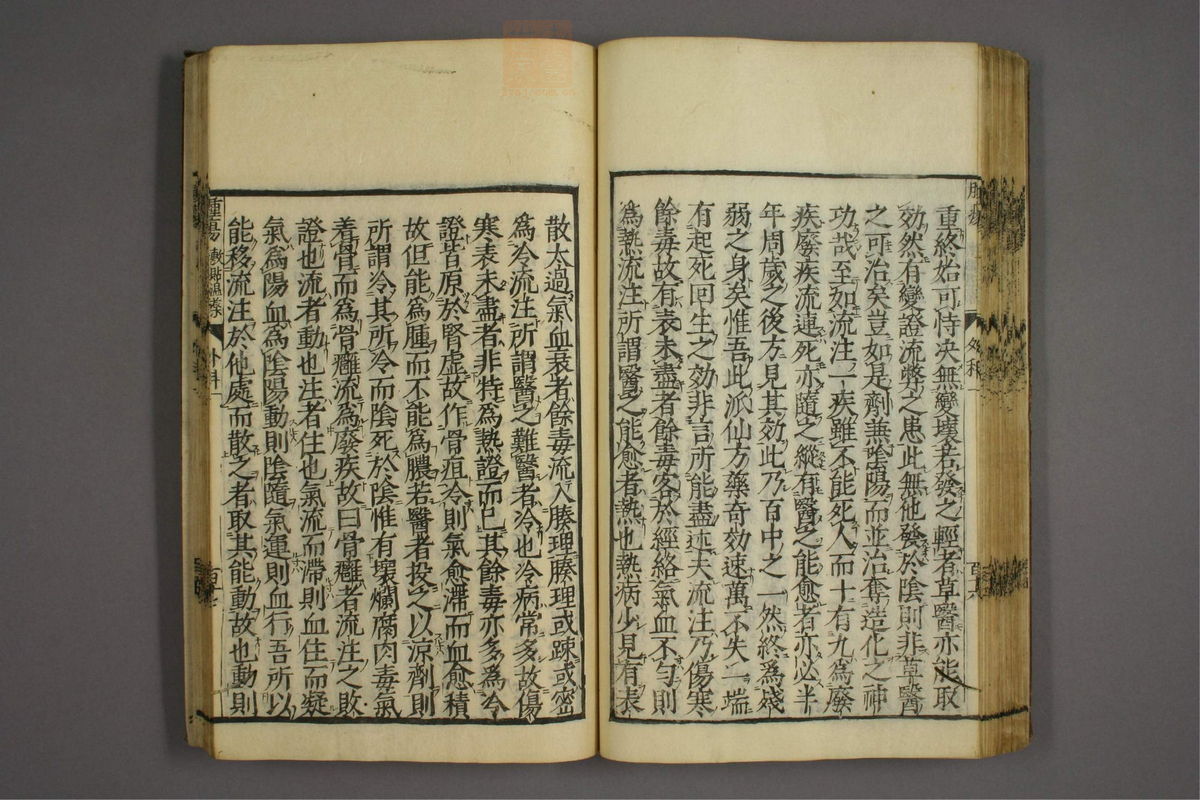 重終始可恃決無變壞若發之輕者草醫亦能取
効然有變證流弊之患此無他發於陰則非草醫
之可治矣豈如是劑兼陰陽而並治奪造化之神
功哉至如流注一疾雖不能死人而十有九為廢
疾廢疾流連死亦隨之縱有醫之能愈者亦必半
年周歲之後方見其効此乃百中之一然終為殘
弱之身矣惟吾此派仙方藥奇効速萬不失一端
有起死回生之効非言所能盡述夫流注乃傷寒
餘毒故有表未盡者餘毒客於經絡氣血不勻則
為熱流注所謂醫之能愈者熱也熱病少見有表
散太過氣血衰者餘毒流入腠理腠理或踈或密
為冷流注所謂醫之難醫者冷也冷病常多故傷
寒表未盡者非特為熱證而已其餘毒亦多為冷
證皆原於腎虛故作骨疽冷則氣愈滯而血愈積
故但能為腫而不能為膿若醫者投之以涼劑則
所謂冷其所冷而陰死於陰惟有壞爛腐肉毒氣
着骨而為骨癰流為廢疾故曰骨癰者流注之敗
證也流者動也注者住也氣流而滯則血住而凝
氣為陽血為陰陽動則陰隨氣運則血行吾所以
能移流注於他處而散之者取其能動故也動則